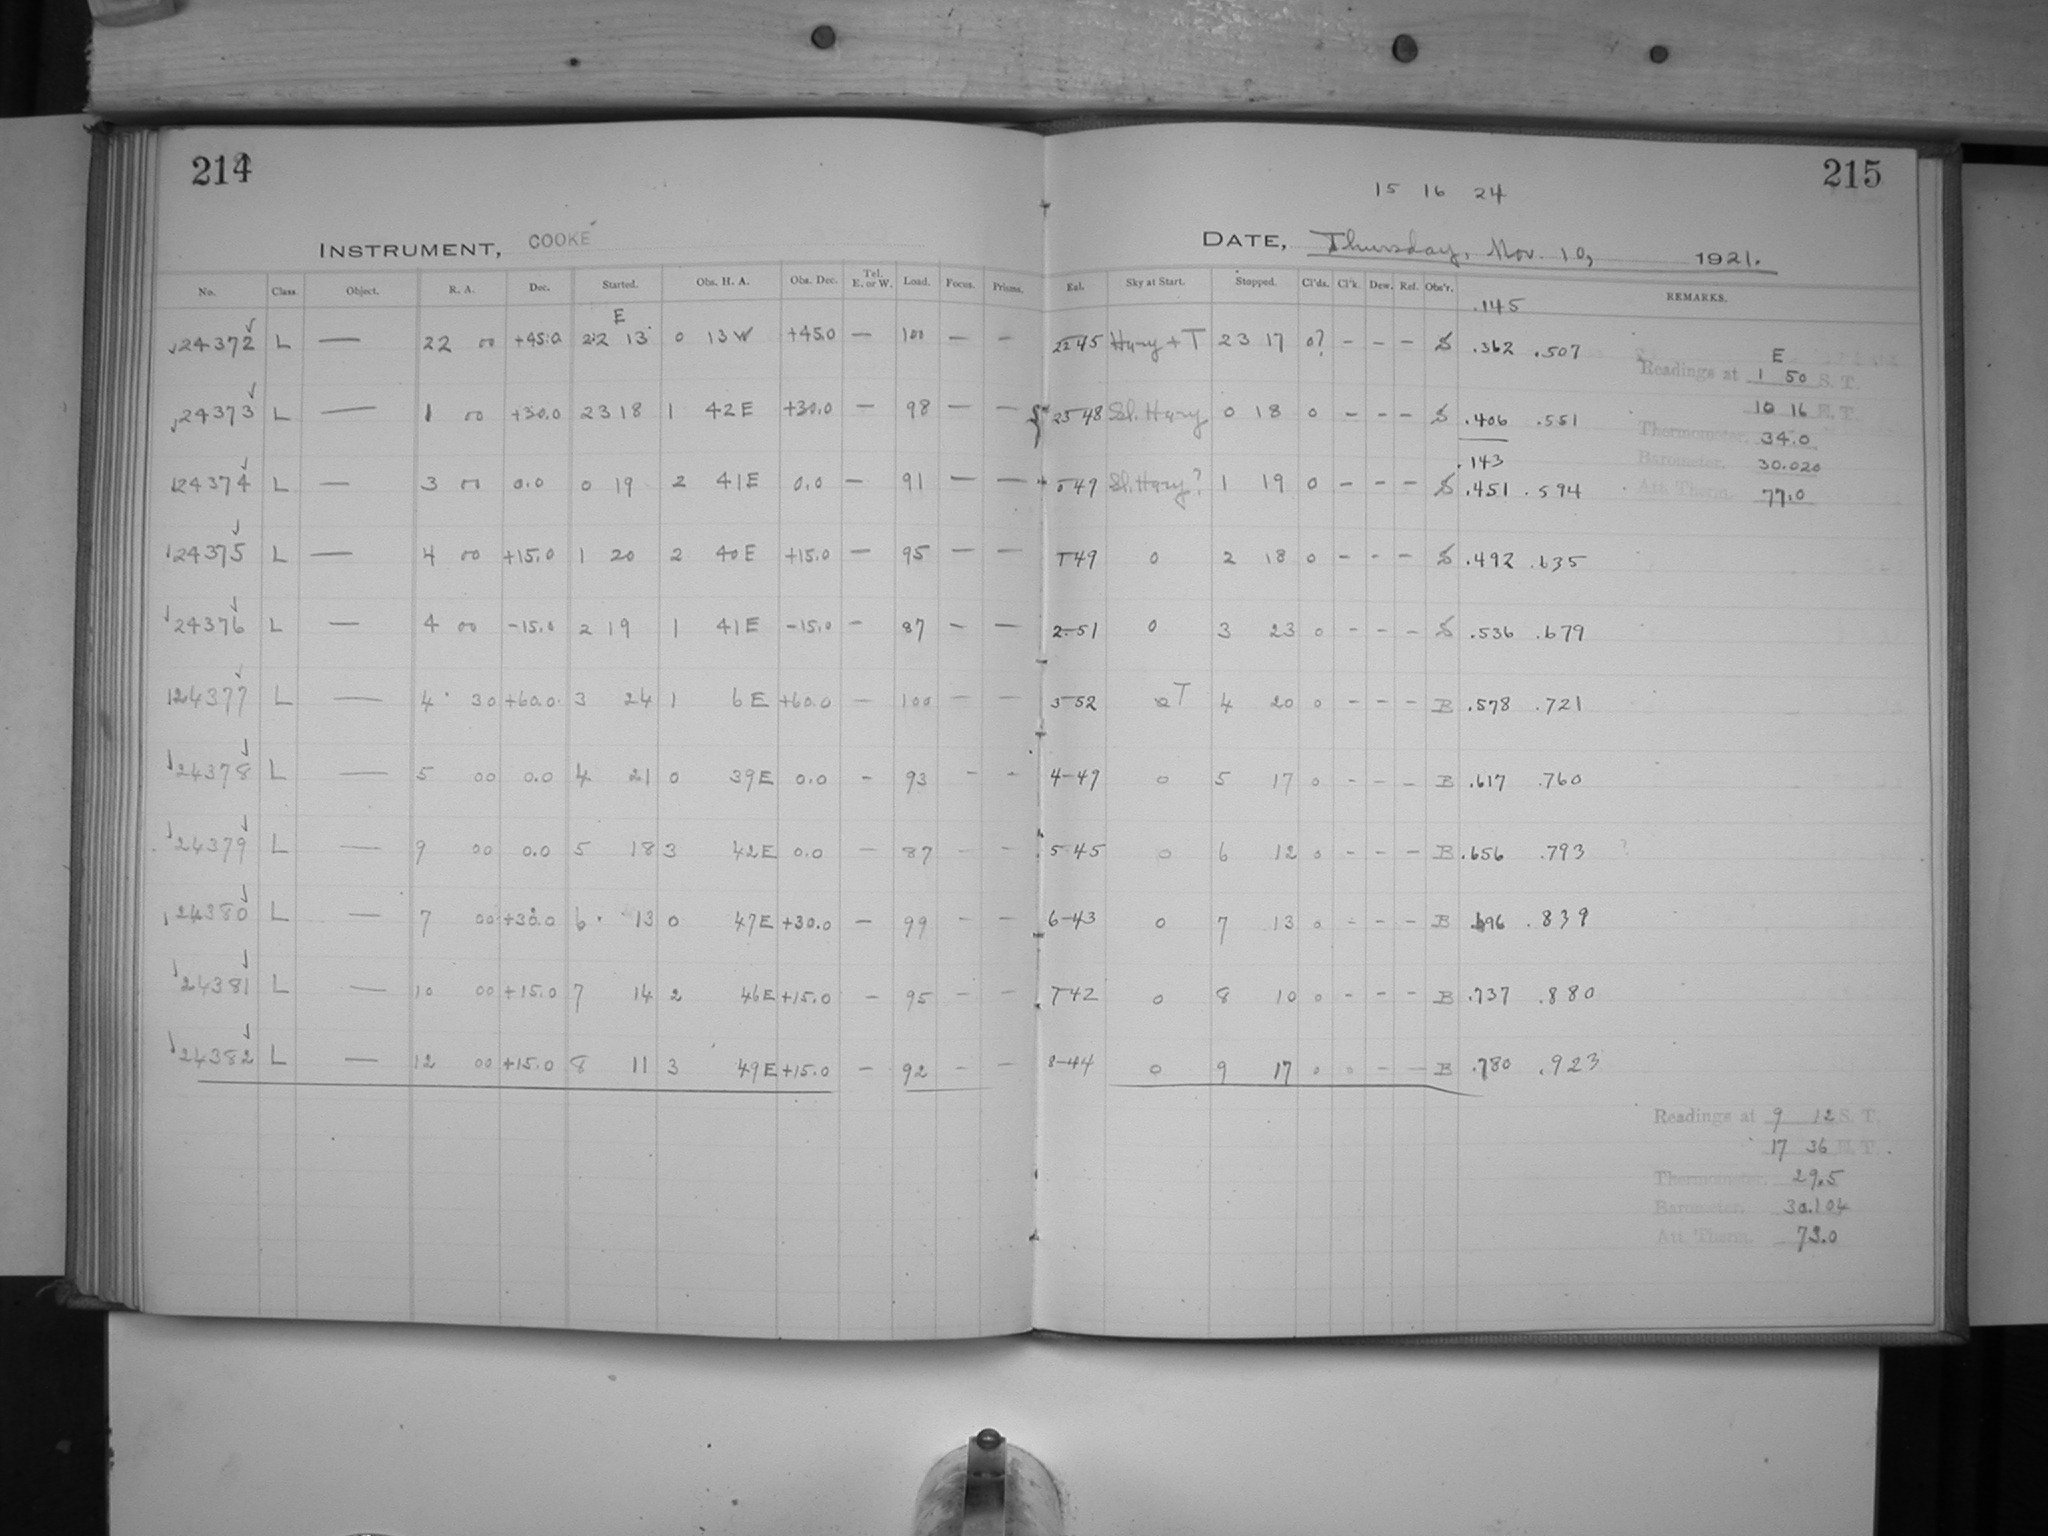 214
215
15 16 24
INSTRUMENT, COOKE
DATE, Thursday, Nov. 10, 1921.
No. Class. Object. R. A. Dec. Started. Obs. H. A. Obs. Dec. Tel. E. or W. Load. Focus. Prisms. Sky at Start. Stopped. Cl'ds. Cl'k. Dew. Ref. Obs'r. REMARKS.
E .145
24372 L — 22 00 +45.0 22 13 0 13 W +45.0 — 100 — — 22 45 Hazy + T 23 17 0? — — — S .362 .507
E
Readings at 1 50 S. T.
10 16 E. T.
24373 L — 1 00 +30.0 23 18 1 42 E +30.0 — 98 — — 23 48 Sl. Hazy 0 18 0 — — — S .406 .551
Thermometer. 34.0
.143
Barometer. 30.020
24374 L — 3 00 0.0 0 19 2 41 E 0.0 — 91 — — 0 49 Sl. Hazy? 1 19 0 — — — S .451 .594
Att. Therm. 77.0
24375 L — 4 00 +15.0 1 20 2 40 E +15.0 — 95 — — 1 49 0 2 18 0 — — — S .492 .635
24376 L — 4 00 -15.0 2 19 1 41 E -15.0 — 87 — — 2-51 0 3 23 0 — — — S .536 .679
24377 L — 4 30 +60.0 3 24 1 6 E +60.0 — 100 — — 3 52 T 4 20 0 — — — B .578 .721
24378 L — 5 00 0.0 4 21 0 39 E 0.0 — 93 — — 4-49 0 5 17 0 — — — B .617 .760
24379 L — 9 00 0.0 5 18 3 42 E 0.0 — 87 — — 5 45 0 6 12 0 — — — B .656 .793 ?
24380 L — 7 00 +30.0 6 13 0 47 E +30.0 — 99 — — 6-43 0 7 13 0 — — — B .696 .839
24381 L — 10 00 +15.0 7 14 2 46 E +15.0 — 95 — — 7 42 0 8 10 0 — — — B .737 .880
24382 L — 12 00 +15.0 8 11 3 49 E +15.0 — 92 — — 8-44 0 9 17 0 0 — — B .780 .923
Readings at 9 12 S. T.
17 36 E. T.
Thermometer. 29.5
Barometer. 30.104
Att. Therm. 73.0